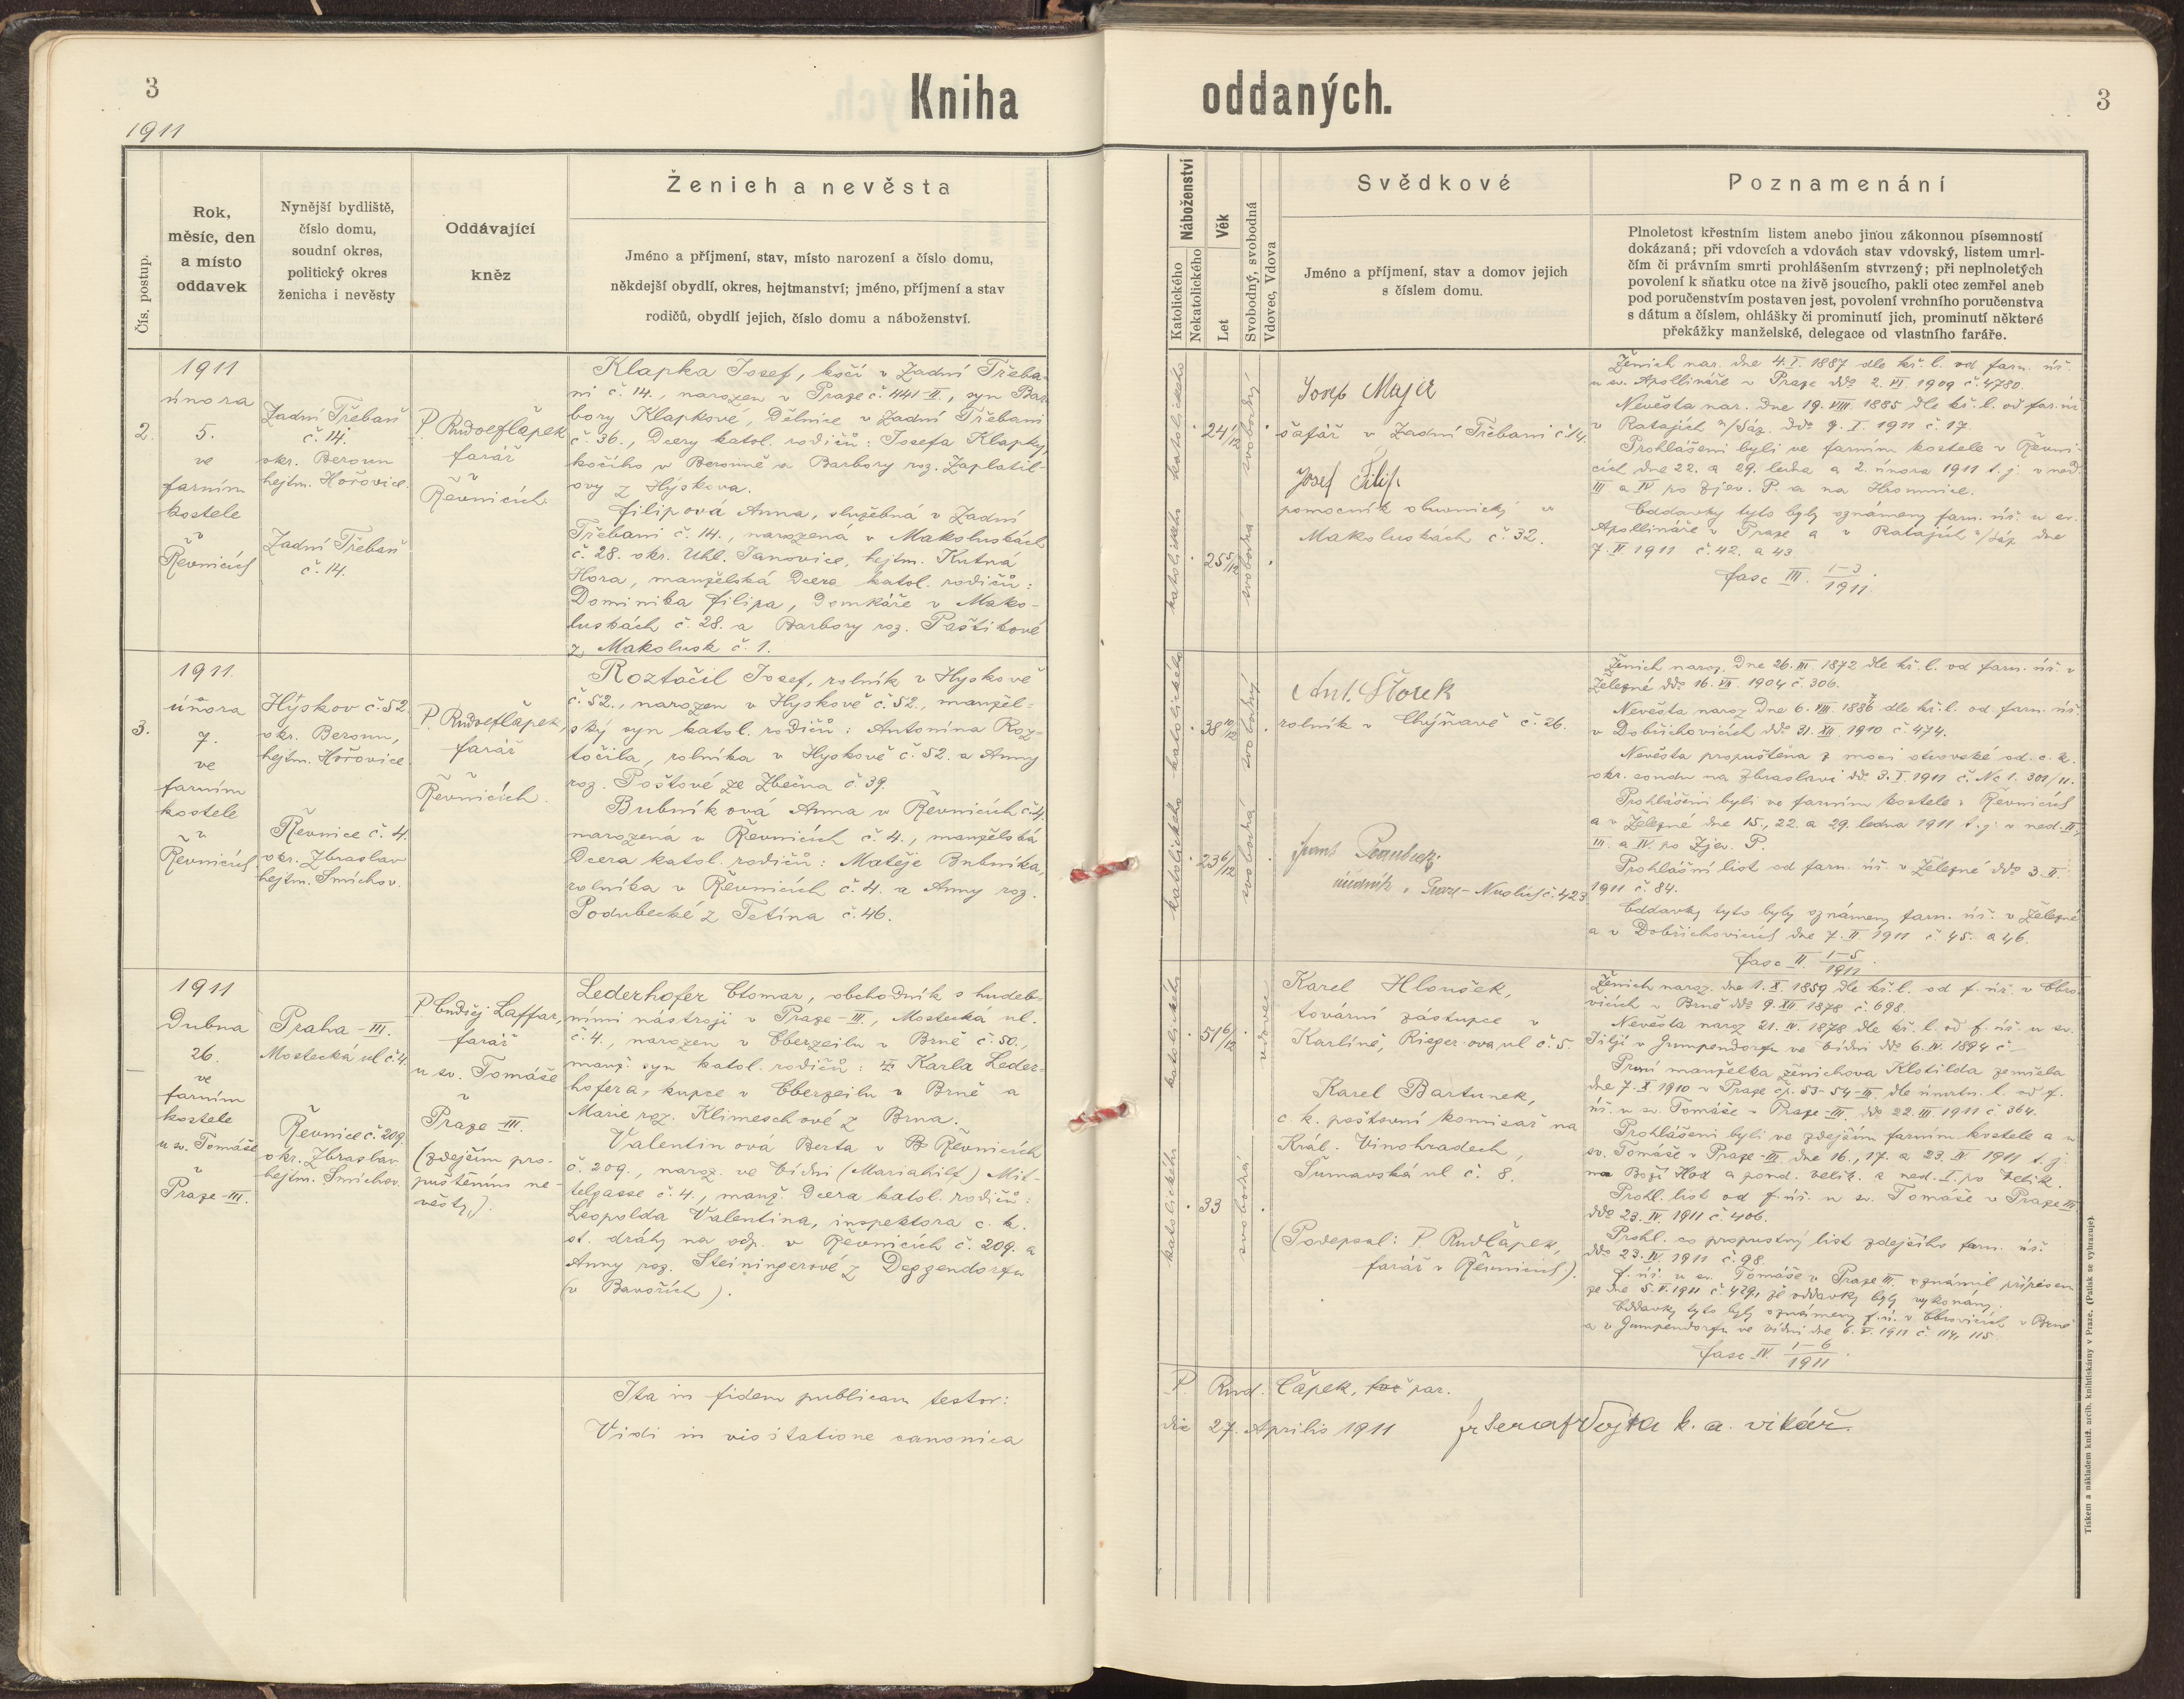 3
Kniha
oddaných.
3
1911
Čís. postup.
Rok,
měsíc, den
a místo
oddavek
Nynější bydliště,
číslo domu,
soudní okres,
politický okres
ženicha i nevěsty
Oddávající
kněz
Ženich a nevěsta
Jméno a příjmení, stav, místo narození a číslo domu,
někdejší obydlí, okres, hejtmanství; jméno, příjmení a stav
rodičů, obydlí jejich, číslo domu a náboženství.
Náboženství
Katolického
Nekatolického
Věk
Let
Svobodný, svobodná
Vdovec, Vdova
Svědkové
Jméno a příjmení, stav a domov jejich
s číslem domu.
Poznamenání
Plnoletost křestním listem anebo jinou zákonnou písemností
dokázaná; při vdovcích a vdovách stav vdovský, listem umrl-
čím či právním smrti prohlášením stvrzený; při neplnoletých
povolení k sňatku otce na živě jsoucího, pakli otec zemřel aneb
pod poručenstvím postaven jest, povolení vrchního poručenstva
s dátum a číslem, ohlášky či prominutí jich, prominutí některé
překážky manželské, delegace od vlastního faráře.
2.
1911
února
5.
ve
farním
kostele
v
Řevnicích
Zadní Třebaň
č. 14.
okr. Beroun
hejtm. Hořovice.
Zadní Třebaň
č. 14.
P. Rudolf Čapek
farář
v
Řevnicích.
Klapka Josef, kočí v Zadní Třeba-
ni č. 14., narozen v Praze č. 441-II., syn Bar-
bory Klapkové, dělnice v Zadní Třebani
č. 36., dcery katol. rodičů: Josefa Klapky,
kočího v Berouně a Barbory roz. Zaplatil-
ovy z Hýskova.
Filipová Anna, služebná v Zadní
Třebani č. 14., narozená v Makoluskách
č. 28. okr. Uhl. Janovice, hejtm. Kutná
Hora, manželská dcera katol. rodičů:
Dominika Filipa, domkáře v Mako-
luskách č. 28. a Barbory roz. Paštikové
z Makolusk č. 1.
katolického
24 1/12
svobodný
katolického
25 5/12
svobodná
Josef Majer
šafář v Zadní Třebani č. 14.
Josef Filip
pomocník obuvnický v
Makoluskách č. 32.
Ženich nar. dne 4. I. 1887 dle kř. l. od farn. úř.
u sv. Apollináře v Praze ddo 2. VI. 1909 č. 4780.
Nevěsta nar. dne 19. VIII. 1885 dle kř. l. od far. úř.
v Ratajích n/Sáz. ddo 9. I. 1911 č. 17.
Prohlášeni byli ve farním kostele v Řevni-
cích dne 22. a 29. ledna a 2. února 1911 t. j. v ned.
III a IV po Zjev. P. a na Hromnice.
Oddavky tyto byly oznámeny farn. úř. u sv.
Apollináře v Praze a v Ratajích n/Sáz. dne
7. II. 1911 č. 42. a 43.
fasc III. 1-3/1911.
3.
1911.
února
7.
ve
farním
kostele
v
Řevnicích
Hýskov č. 52.
okr. Beroun,
hejtm. Hořovice
Řevnice č. 4.
okr. Zbraslav
hejtm. Smíchov.
P. Rudolf Čapek,
farář
v
Řevnicích.
Roztočil Josef, rolník v Hýskově
č. 52., narozen v Hýskově č. 52., manžel-
ský syn katol. rodičů: Antonína Roz-
točila, rolníka v Hýskově č. 52. a Anny
roz. Poštové ze Zbečna č. 39.
Bubníková Anna v Řevnicích č. 4.
narozená v Řevnicích č. 4., manželská
dcera katol. rodičů: Matěje Bubníka,
rolníka v Řevnicích č. 4. a Anny roz.
Podubecké z Tetína č. 46.
katolického
38 10/12
svobodný
katolického
23 6/12
svobodná
Ant. Štorek
rolník v Chýňavě č. 26.
úředník v Praze-Nuslích č. 423
Ženich naroz. dne 26. III. 1872 dle kř. l. od farn. úř. v
Železné ddo 16. VII. 1904 č. 306.
Nevěsta naroz. dne 6. VIII. 1886 dle kř. l. od farn. úř.
v Dobřichovicích ddo 31. XII. 1910 č. 474.
Nevěsta propuštěna z moci otcovské od c. k.
okr. soudu na Zbraslavi dd. 3. I. 1911 č. Nc I. 301/11.
Prohlášeni byli ve farním kostele v Řevnicích
a v Železné dne 15., 22. a 29. ledna 1911 t. j. v ned. II.,
III. a IV. po Zjev. P.
Prohlášní list od farn. úř. v Železné ddo 3. II.
1911 č. 84.
Oddavky tyto byly oznámeny farn. úř. v Železné
a v Dobřichovicích dne 7. II. 1911 č. 45. a 46.
fasc II. 1-5/1911.
—
1911
dubna
26.
ve
farním
kostele
u sv. Tomáše
v
Praze-III.
Praha-III.
Mostecká ul č. 4.
Řevnice č. 209.
okr. Zbraslav
hejtm. Smíchov.
P. Ondřej Laffar,
farář
u sv. Tomáše
v
Praze III.
(zdejším pro-
puštěním ne-
věsty).
Lederhofer Otomar, obchodník s hudeb-
ními nástroji v Praze-III., Mostecká ul.
č. 4., narozen v Oberzeilu v Brně č. 50.,
manž. syn katol. rodičů: Karla Leder-
hofera, kupce v Oberzeilu v Brně a
Marie roz. Klimeschové z Brna.
Valentinová Berta v Řevnicích
č. 209., naroz. ve Vídni (Mariahilf) Mit-
telgasse č. 4., manž. dcera katol. rodičů:
Leopolda Valentina, inspektora c. k.
st. dráhy na odp. v Řevnicích č. 209. a
Anny roz. Steiningerové z Deggendorfu
(v Bavořích).
katolického
51 6/12
vdovec
katolického
33
svobodná
Karel Hloušek,
tovární zástupce v
Karlíně, Riegerova ul č. 5.
Karel Bartunek,
c. k. poštovní komisař na
Král. Vinohradech,
Šumavská ul č. 8.
(Podepsal: P. Rud Čapek,
farář v Řevnicích).
Ženich naroz. dne 1. X. 1859 dle kř. l. od f. úř. v Obro-
vicích v Brně ddo 9. XII. 1878 č. 698.
Nevěsta naroz. 21. IV. 1878 dle kř. l. od f. úř. u sv.
Jiljí v Gumpendorfu ve Vídni ddo 6. IV. 1894 č —
První manželka ženichova Klotilda zemřela
dne 7. X. 1910 v Praze čp. 53-54-III. dle úmrtn. l. od f.
úř. u sv. Tomáše v Praze-III. ddo 22. III. 1911 č. 364.
Prohlášeni byli ve zdejším farním kostele a u
sv. Tomáše v Praze-III. dne 16., 17. a 23. IV. 1911 t. j.
na Boží Hod a pond. velik. a ned. I. po Velik.
Prohl. list od f. úř. u sv. Tomáše v Praze III.
ddo 23. IV. 1911 č. 406.
Prohl. co propustný list zdejšího farn. úř.
ddo 23. IV. 1911 č. 98.
F. úř. u sv. Tomáše v Praze III. oznámil přípisem
ze dne 5. V. 1911 č. 429, že oddavky byly vykonány.
Oddavky tyto byly oznámeny f. ú. v Obrovicích v Brně
a v Gumpendorfu ve Vídni dne 6. V. 1911 č. 114, 115.
fasc IV. 1-6/1911.
Ita in fidem publicam testor:
P. Rud. Čapek, par.
Vidi in visitatione canonica
die 27. Aprilis 1911
Vojta k. a. vikář.
Tiskem a nákladem kníž. arcib. knihtiskárny v Praze. (Patisk se vyhrazuje).